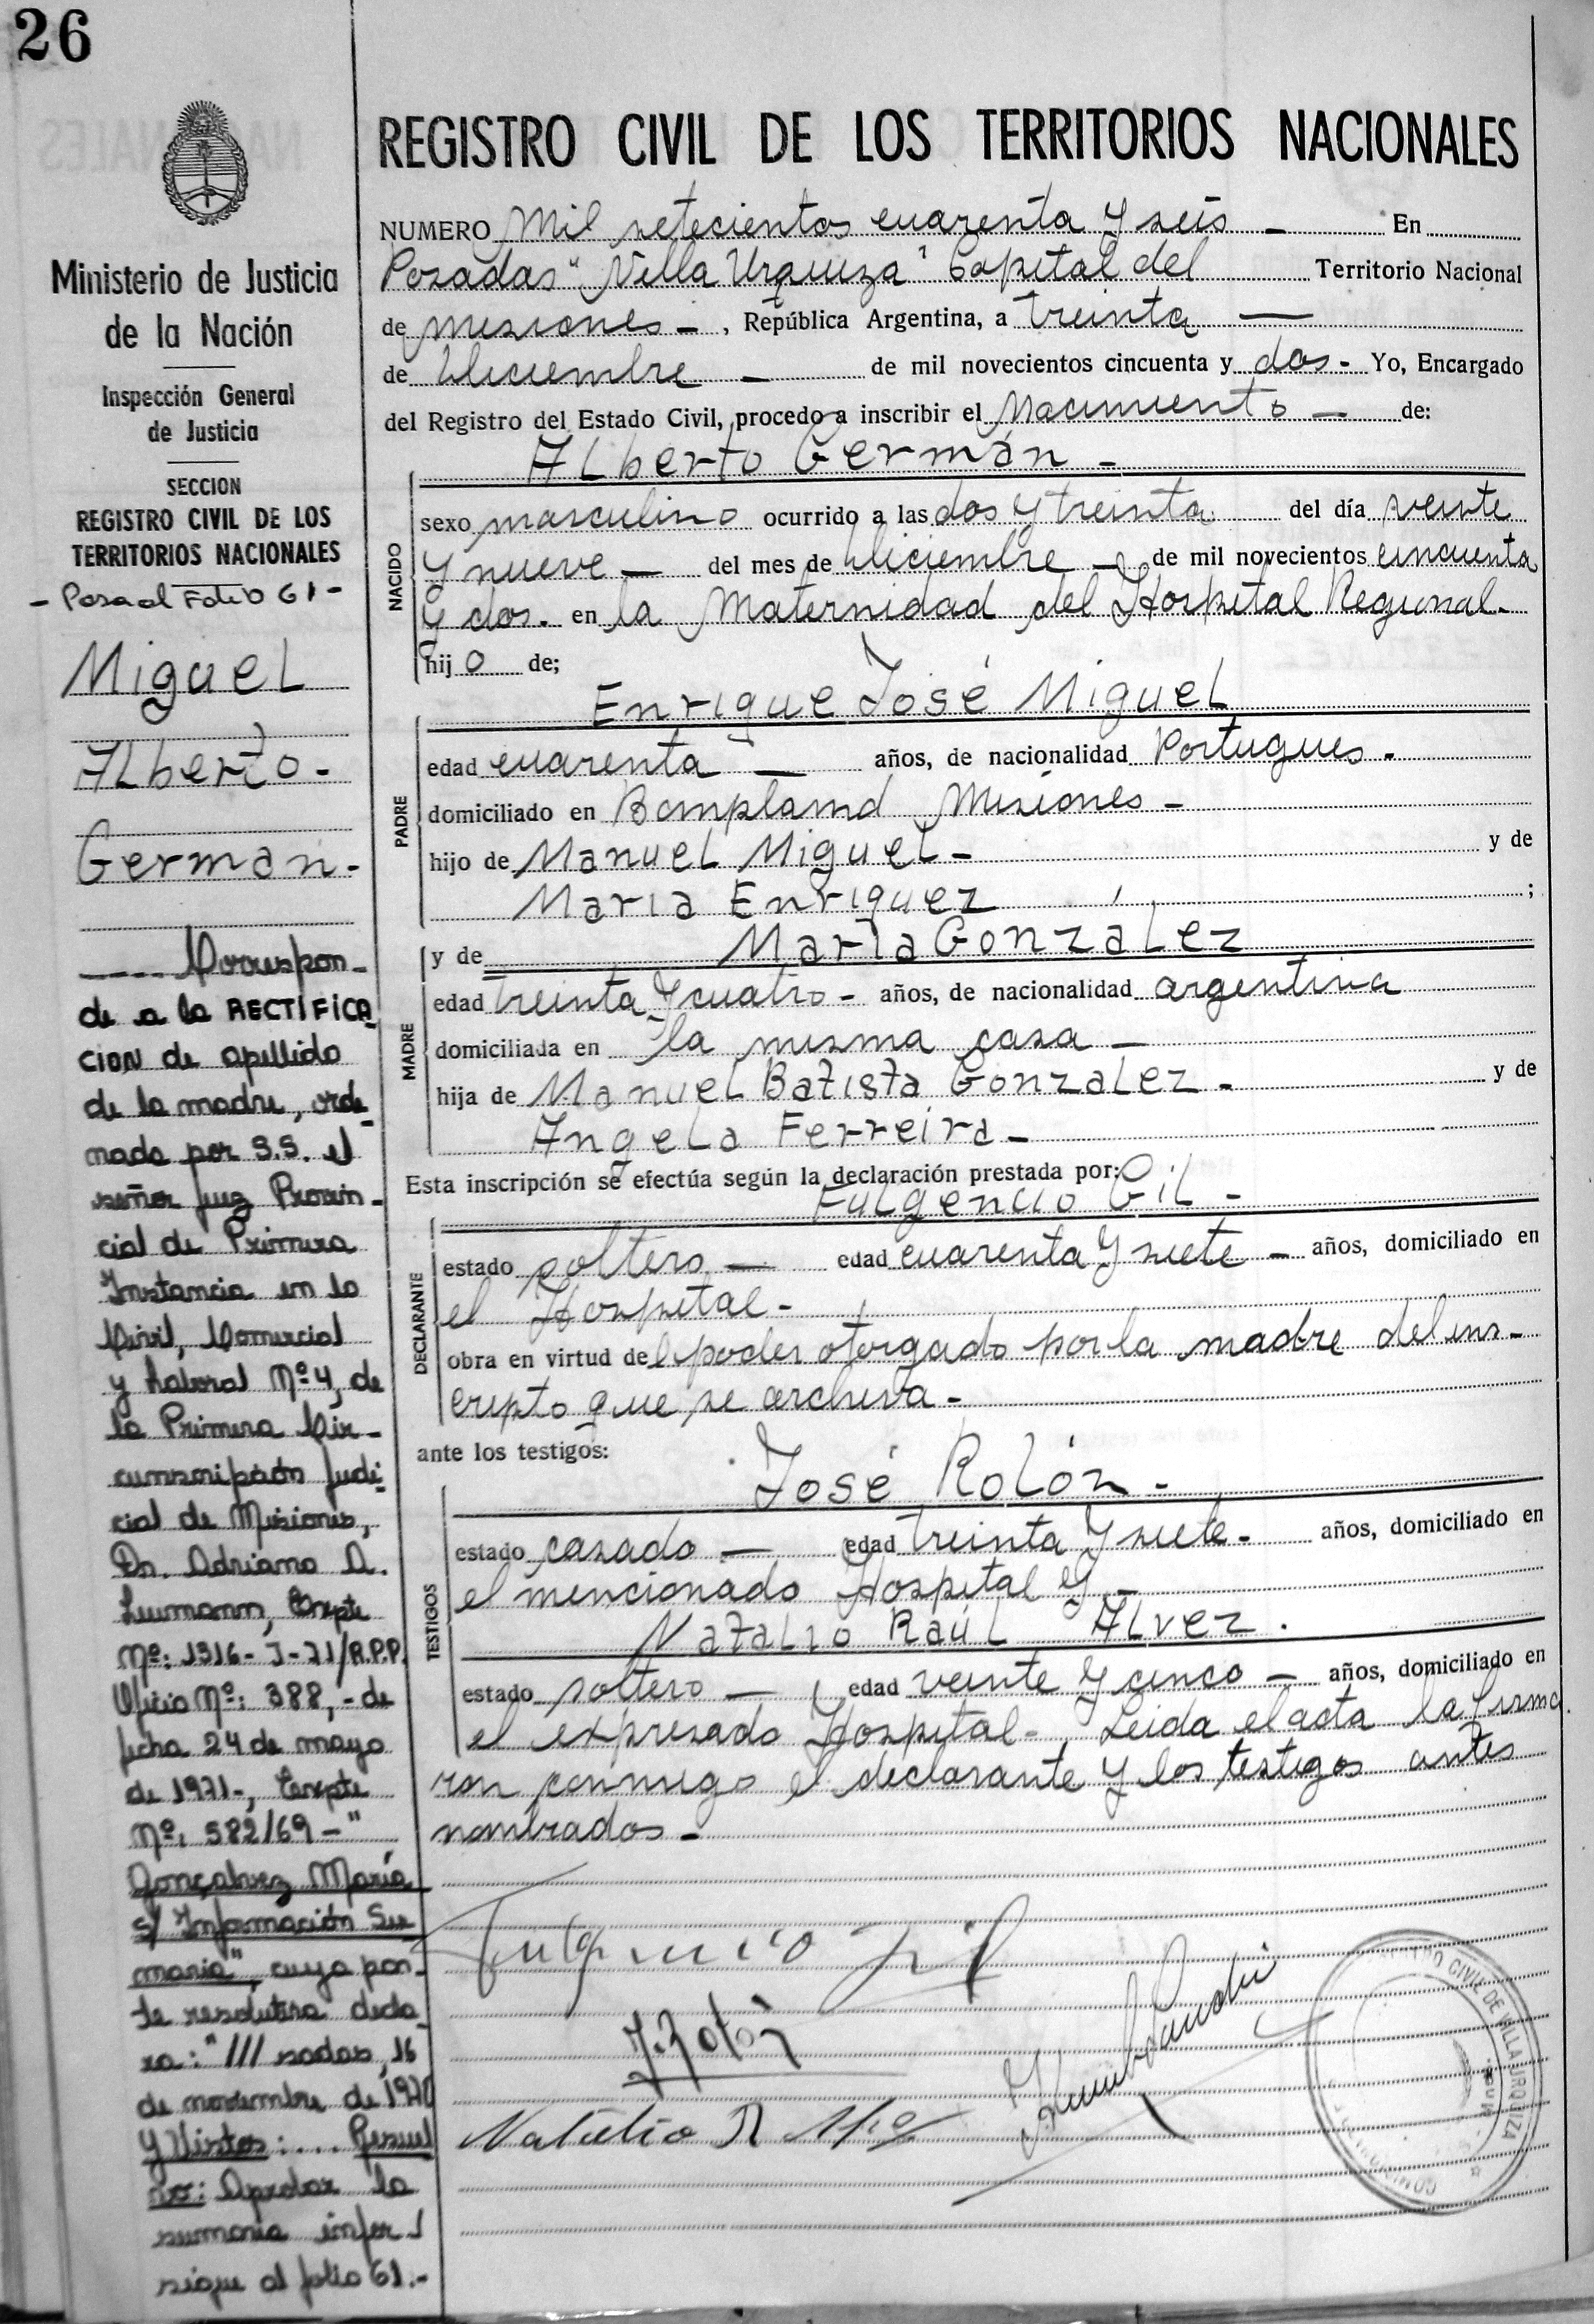 26
REGISTRO CIVIL DE LOS TERRITORIOS NACIONALES
NUMERO Mil setecientos cuarenta y seis - En
Posadas "Villa Urquiza" Capital del Territorio Nacional
de misiones - , República Argentina, a treinta —
de diciembre - de mil novecientos cincuenta y dos - Yo, Encargado
del Registro del Estado Civil, procedo a inscribir el Nacimiento - de:
Alberto Germán -
NACIDO
sexo masculino ocurrido a las dos y treinta del día veinte
y nueve - del mes de diciembre - de mil novecientos cincuenta
y dos. en la Maternidad del Hospital Regional.
hijo de;
Enrique José Miguel
PADRE
edad cuarenta - años, de nacionalidad Portugues -
domiciliado en Bompland Misiones -
hijo de Manuel Miguel - y de
Maria Enriquez ;
y de Maria Gonzalez
MADRE
edad treinta y cuatro - años, de nacionalidad argentina
domiciliada en la misma casa -
hija de Manuel Batista Gonzalez - y de
Angela Ferreira -
Esta inscripción se efectúa según la declaración prestada por:
Fulgencio Gil -
DECLARANTE
estado soltero - edad cuarenta y siete - años, domiciliado en
el Hospital -
obra en virtud del poder otorgado por la madre del ins-
cripto que se archiva -
ante los testigos:
José Rolón -
TESTIGOS
estado casado - edad treinta y siete - años, domiciliado en
el mencionado Hospital y -
Natalio Raúl Alvez .
estado soltero - edad veinte y cinco - años, domiciliado en
el expresado Hospital - Leida el acta la firma
ron conmigo el declarante y los testigos antes
nombrados -
Fulgencio Gil
J. Rolón
Natalio R
CIVIL DE VILLA URQUIZA
Ministerio de Justicia
de la Nación
Inspección General
de Justicia
SECCION
REGISTRO CIVIL DE LOS
TERRITORIOS NACIONALES
- Pasa al Folio 61 -
Miguel
Alberto -
German -
---- Correspon-
de a la RECTIFICA
CION de apellido
de la madre, orde-
nada por S.S. el
señor Juez Provin-
cial de Primera
Instancia en lo
Civil, Comercial
y Laboral Nº 4, de
la Primera Cir-
cunscripción Judi-
cial de Misiones,
Dr. Adriano A.
Expte
Nº: 1316-J-71/R.P.P.
Oficio Nº: 388,- de
fecha 24 de mayo
de 1971-, Expte
Nº, 582/69-"
Gonçalvez María
s/ Información Su
maria", cuya par-
te resolutiva decla
ra: "/// sadas, 16
de noviembre de 1970
Y Vistos: ... Resuel
vo: Aprobar la
sumaria infor-/
sigue al folio 61.-